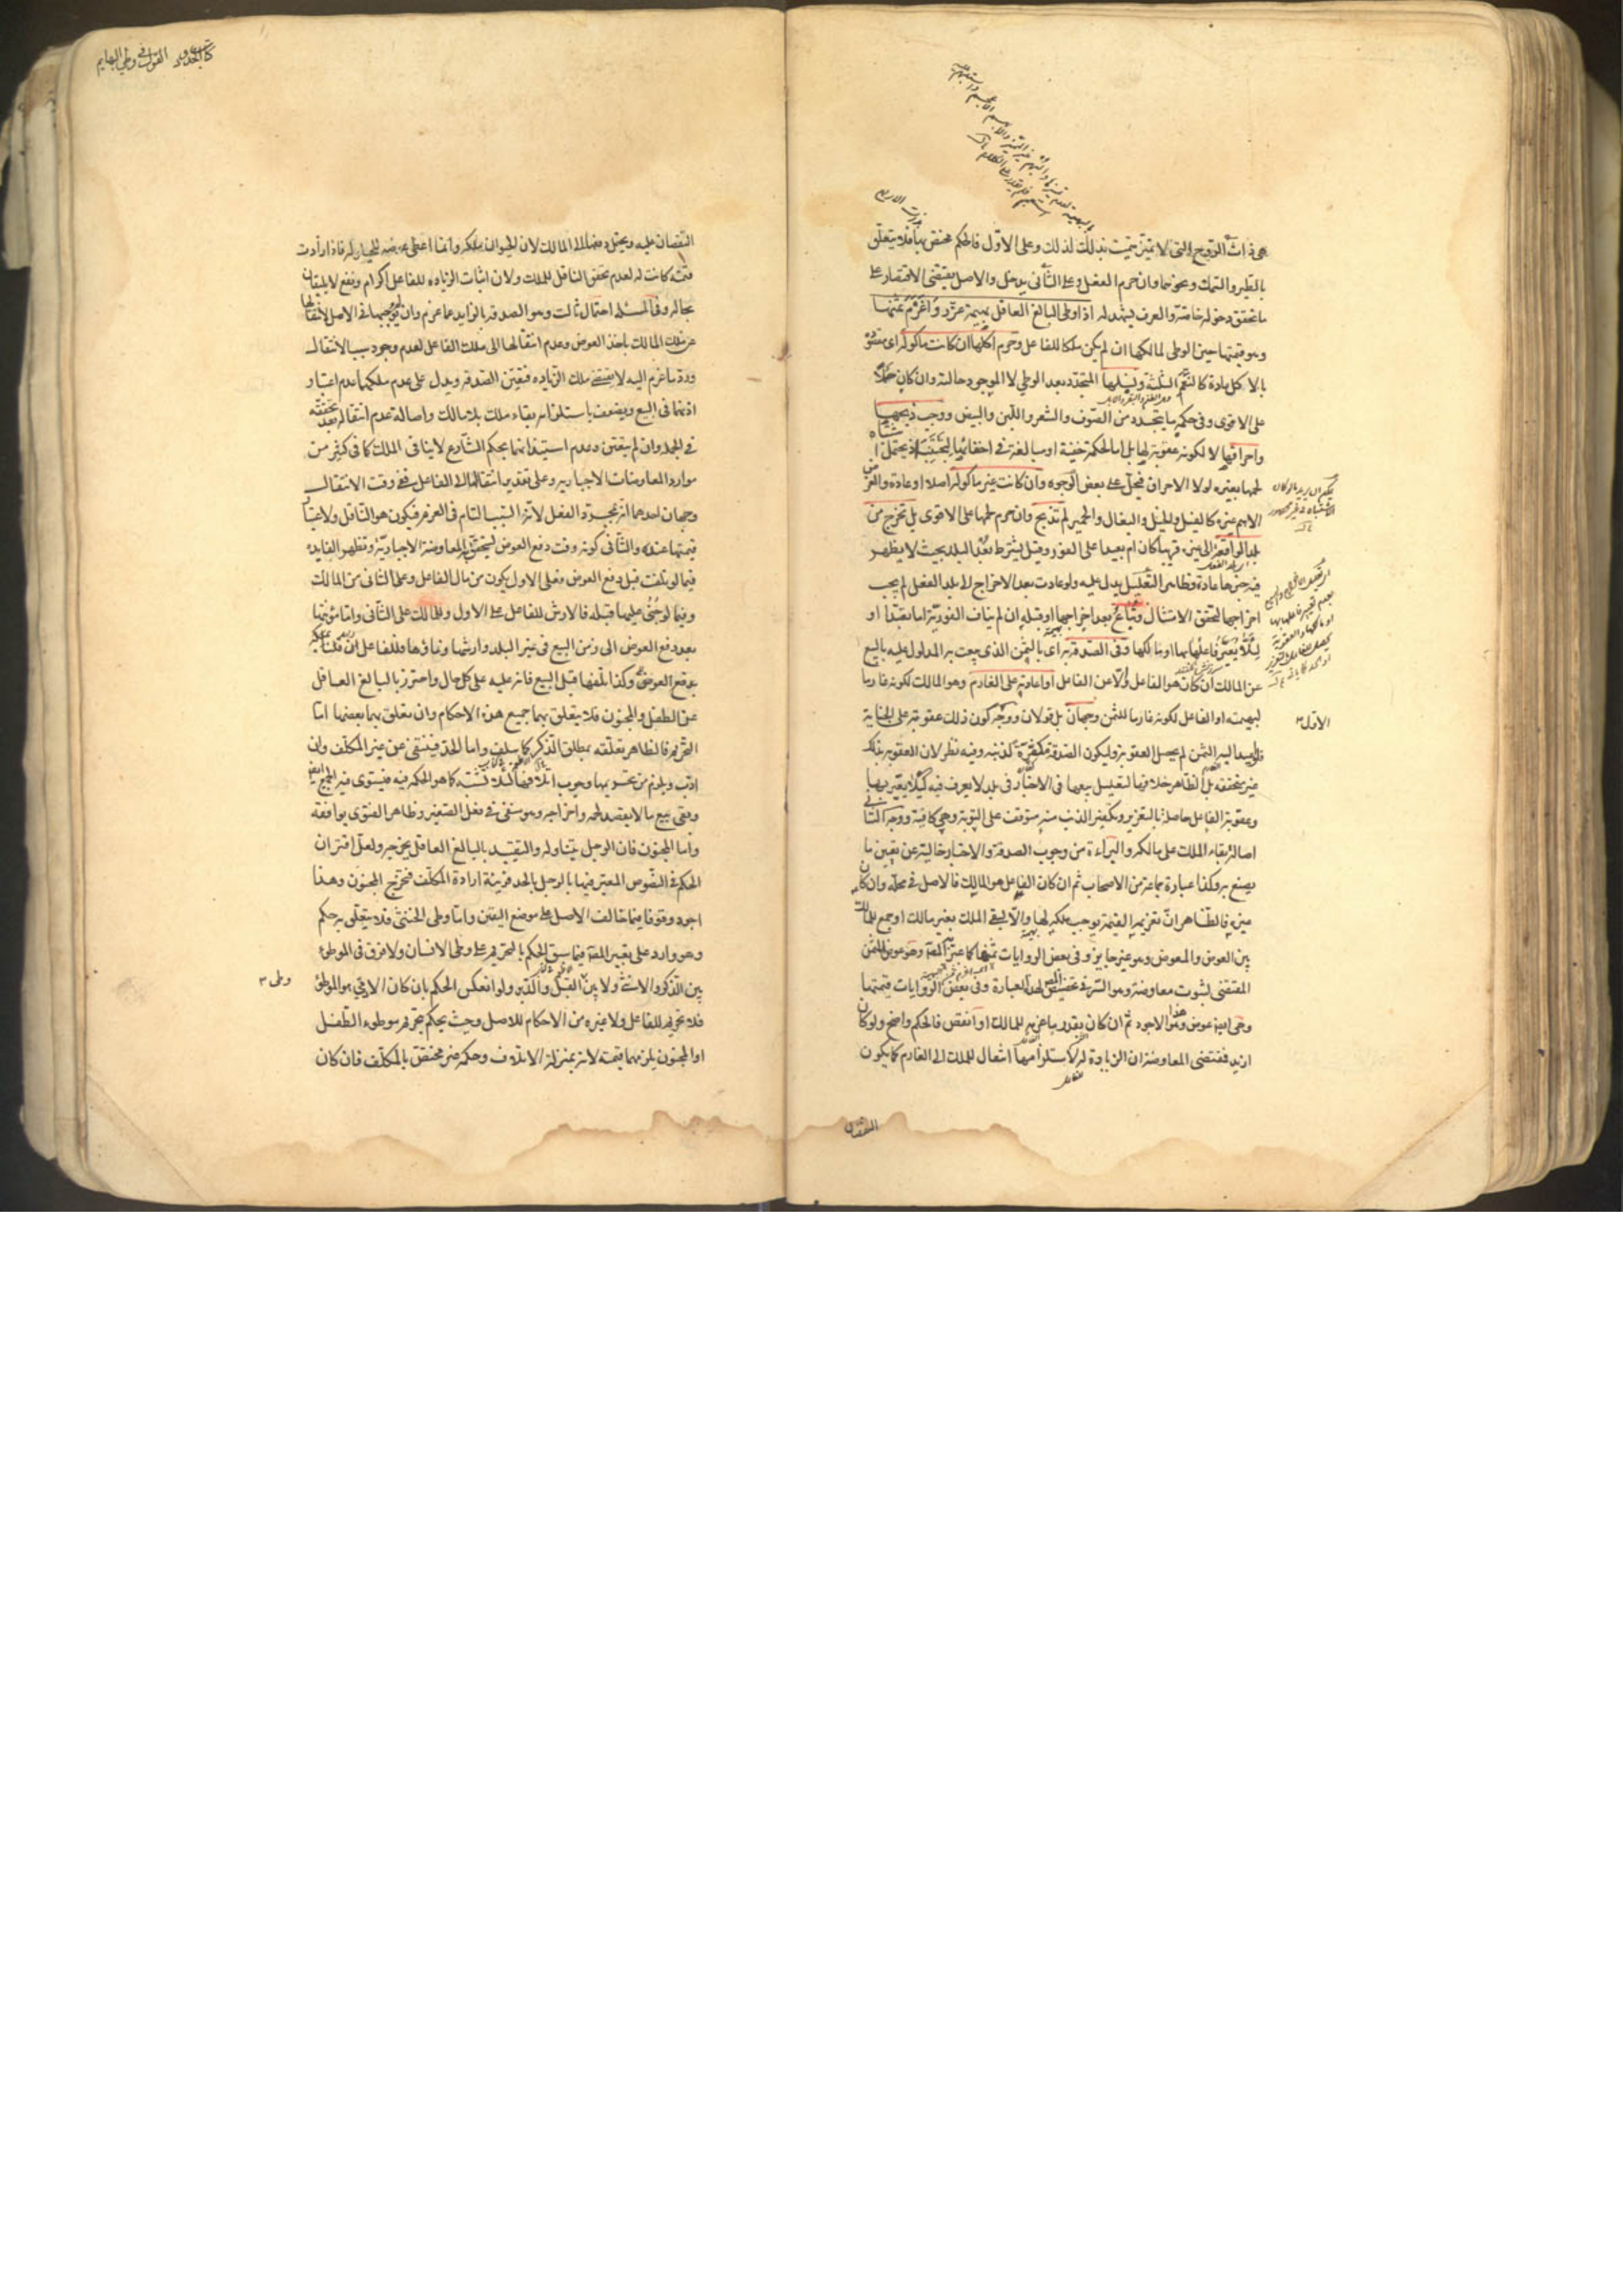 هي ذات الروح التي لا تميز سميت بذلك لذلك وعلى الاول فالحكم مختص بها فلا يتعلق
بالطير والسمك ونحوهما وان حرم الفعل وعلى الثاني يدخل والاصل يقتضي الاقتصار على
ما تحقق دخوله خاصة والعرف يشهد له اذا وطئ البالغ العاقل بهيمة عزر واغرم ثمنها
وهو قيمتها حين الوطي لمالكها ان لم يكن ملكا للفاعل وحرم اكلها ان كانت ماكولة اى مقصودة
بالاكل عادة كالنعم الثلثة ونسلها المتجدد بعد الوطي لا الموجود حالته وان كان حملا
على الاقوى وفي حكمه ما يتجدد من الصوف والشعر واللبن والبيض ووجب ذبحها
واحراقها لا لكونه عقوبة لها بل اما لحكمة خفية او مبالغة في اخفائها لتجتنب اذ يحتمل اشتباه
لحمها بغيره لولا الاحراق فيحل على بعض الوجوه وان كانت غير ماكولة اصلا او عادة والغرض
الاهم غيره كالفيل والخيل والبغال والحمير لم تذبح وان حرم لحمها على الاقوى بل تخرج من
بلد الواقعة الى غيره قريبا كان ام بعيدا على الفور وقيل يشترط بعد البلد بحيث لا يظهر
فيه خبرها عادة وظاهر التعليل يدل عليه ولو عادت بعد الاخراج الى بلد الفعل لم يجب
اخراجها لتحقق الامتثال وتباع بعد اخراجها او قبله ان لم يناف الفورية اما تعبدا او
لئلا يعير فاعلها بها او مالكها وفي الصدقة به اى بالثمن الذى بيعت به المدلول عليه بالبيع
عن المالك ان كان هو الفاعل والا عن الفاعل او اعادته على الغارم وهو المالك لكونه غارما
لبهيمته او الفاعل لكونه غارما للثمن وجهان بل قولان ووجه كون ذلك عقوبة على الجناية
فلو اعيد اليه الثمن لم يحصل العقوبة وليكون الصدقة مكفرة لذنبه وفيه نظر لان العقوبة بذلك
غير متحققة بل الظاهر خلافها لتعليل بيعها في الاخبار في بلد لا يعرف فيه كيلا يعير بها
وعقوبة الفاعل حاصلة بالتعزير وتكفير الذنب منه متوقف على التوبة وهي كافية ووجه الثاني
اصالة بقاء الملك على مالكه والبراءة من وجوب الصدقة والاخبار خالية عن تعيين ما
يصنع به وكذا عبارة جماعة من الاصحاب ثم ان كان الفاعل هو المالك فالاصل في محله وان كان
غيره فالظاهر ان تغريمه القيمة يوجب ملكه لها والا لبقي الملك بغير مالك او جمع للمالك
بين العوض والمعوض وهو غير جايز وفي بعض الروايات ثمنها كما عبر المص وهو عوض المثمن
المقتضي لثبوت معاوضة وهو السر في تخصيص المص لهذه العبارة وفي بعض الروايات قيمتها
وهي ايضا عوض وهذا هو الاجود ثم ان كان بقدر ما غرمه للمالك او انقص فالحكم واضح ولو كان
ازيد فمقتضى المعاوضة ان الزيادة له لاستلزامها انتقال الملك الى الغارم كما يكون
النقصان
الاول
كتاب الحدود القول في وطي البهايم
النقصان عليه ويحتمل دفعها الى المالك لان الحيوان ملكه وانما اعطى عوضه للحيلولة فاذا زادت
قيمته كانت له لعدم تحقق الناقل للملك ولان اثبات الزيادة للفاعل اكرام ونفع لا يليقان
بحاله وفي المسئلة احتمال ثالث وهو الصدقة بالزايد عما غرم وان لم نوجبها في الاصل لانتقالها
عن ملك المالك باخذ العوض وعدم انتقالها الى ملك الفاعل لعدم وجود سبب الانتقال
ورد ما غرم اليه لا يقتضي ملك الزيادة فتعين الصدقة ويدل على عدم ملكهما عدم اعتبار
اذنهما في البيع ويضعف باستلزامه بقاء ملك بلا مالك واصالة عدم انتقاله بعد تحققه
في الجملة وان لم يتعين وعدم استيذانهما بحكم الشارع لا ينافي الملك كما في كثير من
موارد المعاوضات الاجبارية وعلى تقدير انتقالها الى الفاعل ففي وقت الانتقال
وجهان احدهما انه بمجرد الفعل لانه السبب التام في الغرم فيكون هو الناقل ولاعتبار
قيمتها عنده والثاني كونه وقت دفع العوض لتتحقق المعاوضة الاجبارية وتظهر الفايدة
فيما لو تلفت قبل دفع العوض فعلى الاول يكون من مال الفاعل وعلى الثاني من المالك
وفيما لو جنى عليها قبله فالارش للفاعل على الاول وللمالك على الثاني واما مؤنتها
بعد دفع العوض الى زمن البيع في غير البلد وارشها ونماؤها فللفاعل ان قلنا بملكه
بدفع العوض وكذا تلفها قبل البيع فانه عليه على كل حال واحترز بالبالغ العاقل
عن الطفل والمجنون فلا يتعلق بهما جميع هذه الاحكام وان تعلق بهما بعضها اما
التحريم فالظاهر تعلقه بمطلق الذكر كما سلف واما الحد فينتفي عن غير المكلف وان
ادب ويلزم من تحريمها وجوب اتلافها لئلا تشتبه كما هو الحكمة فيه فيستوى فيه الجميع ايضا
وبقي بيع ما لا يقصد لحمه واخراجه وهو منفي في فعل الصغير وظاهر الفتوى يوافقه
واما المجنون فان الرجل يتناوله والتقييد بالبالغ العاقل يخرجه ولعل اقتران
الحكم في النصوص المعبر فيها بالرجل بالحد قرينة ارادة المكلف فيخرج المجنون وهذا
اجود وقوفا فيما خالف الاصل على موضع اليقين واما وطي الخنثى فلا يتعلق به حكم
وهو وارد على تعبير المص فيما سبق الحكم بالتحريم على وطي الانسان ولا فرق في الموطوء
بين الذكر والانثى ولا بين القبل والدبر ولو انعكس الحكم بان كان الادمي هو الموطوء
فلا تحريم للفاعل ولا غيره من الاحكام للاصل وحيث يحكم بتحريم موطوء الطفل
او المجنون يلزمهما قيمته لانه بمنزلة الاتلاف وحكمه غير مختص بالمكلف فان كان
وطي